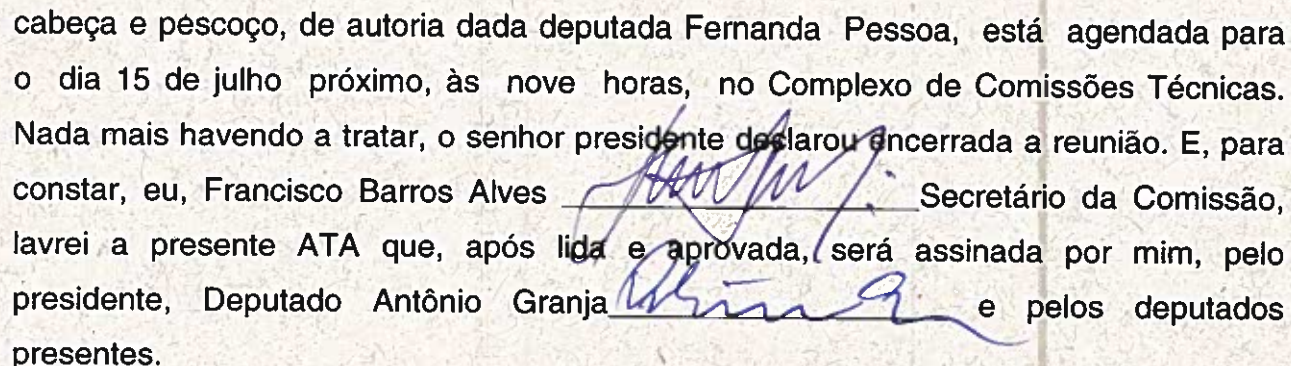 cabeça e pescoço, de autoria dada deputada Fernanda Pessoa, está agendada para
o dia 15 de julho próximo, às nove horas, no Complexo de Comissões Técnicas.
Nada mais havendo a tratar, o senhor presidente declarou encerrada a reunião. E, para
constar, eu, Francisco Barros Alves Secretário da Comissão,
lavrei a presente ATA que, após lida e aprovada, será assinada por mim, pelo
presidente, Deputado Antônio Granja e pelos deputados
presentes.